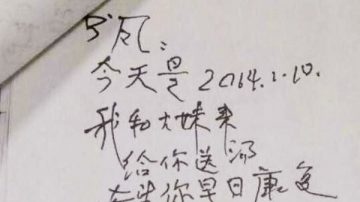 今天是2014.1.10.
我和大妹来
给你送汤
你早日康复